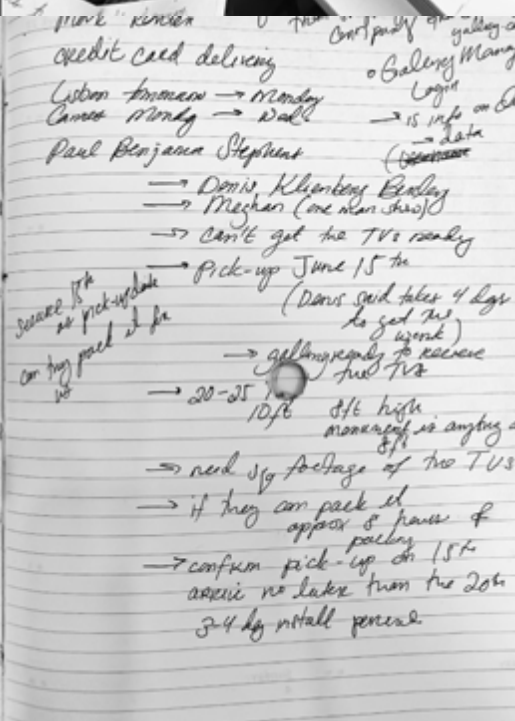 credit card delivering
Lisbon tomorrow → Monday
Monday → Wed
Paul Benjamin Stephens
→ Denis, Klienberg
→ Meghan (one man show)
→ can't get the TVs ready
→ Pick-up June 15th
(Denis said takes 4 days
to get the
work)
→ gallery ready to receive
the TVs
→ 20-25
10ft 8ft high
monument is anything
8ft
→ need sq footage of the TVs
→ if they can pack it
approx 8 hours of
packing
→ confirm pick-up on 15th
arrive no later than the 20th
3-4 day install period
secure 15th
as pick-up date
can they pack it for
us
company
Gallery
Login
→ is info on
→ data